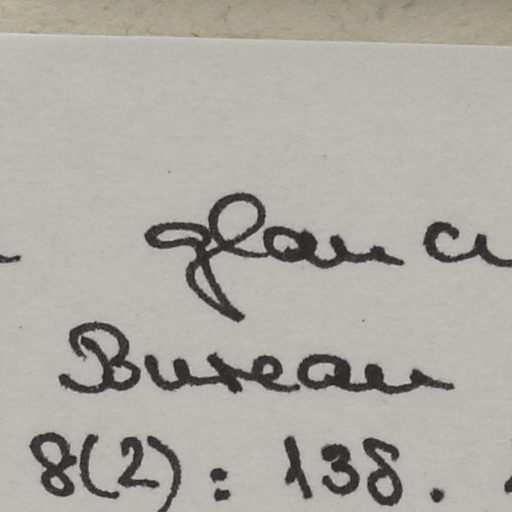 glauc
Bureau
8(2): 138.